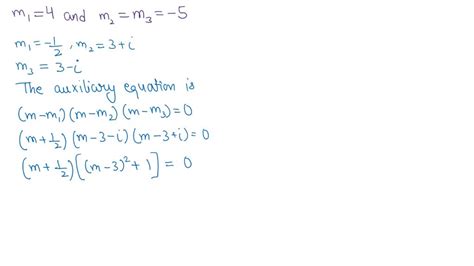 m₁=4 and m₂=m₃=-5
m₁=-1/2, m₂=3+i
m₃ = 3-i
The auxiliary equation is
(m-m₁)(m-m₂)(m-m₃)=0
(m+1/2)(m-3-i)(m-3+i)=0
(m+1/2)[(m-3)²+1]=0